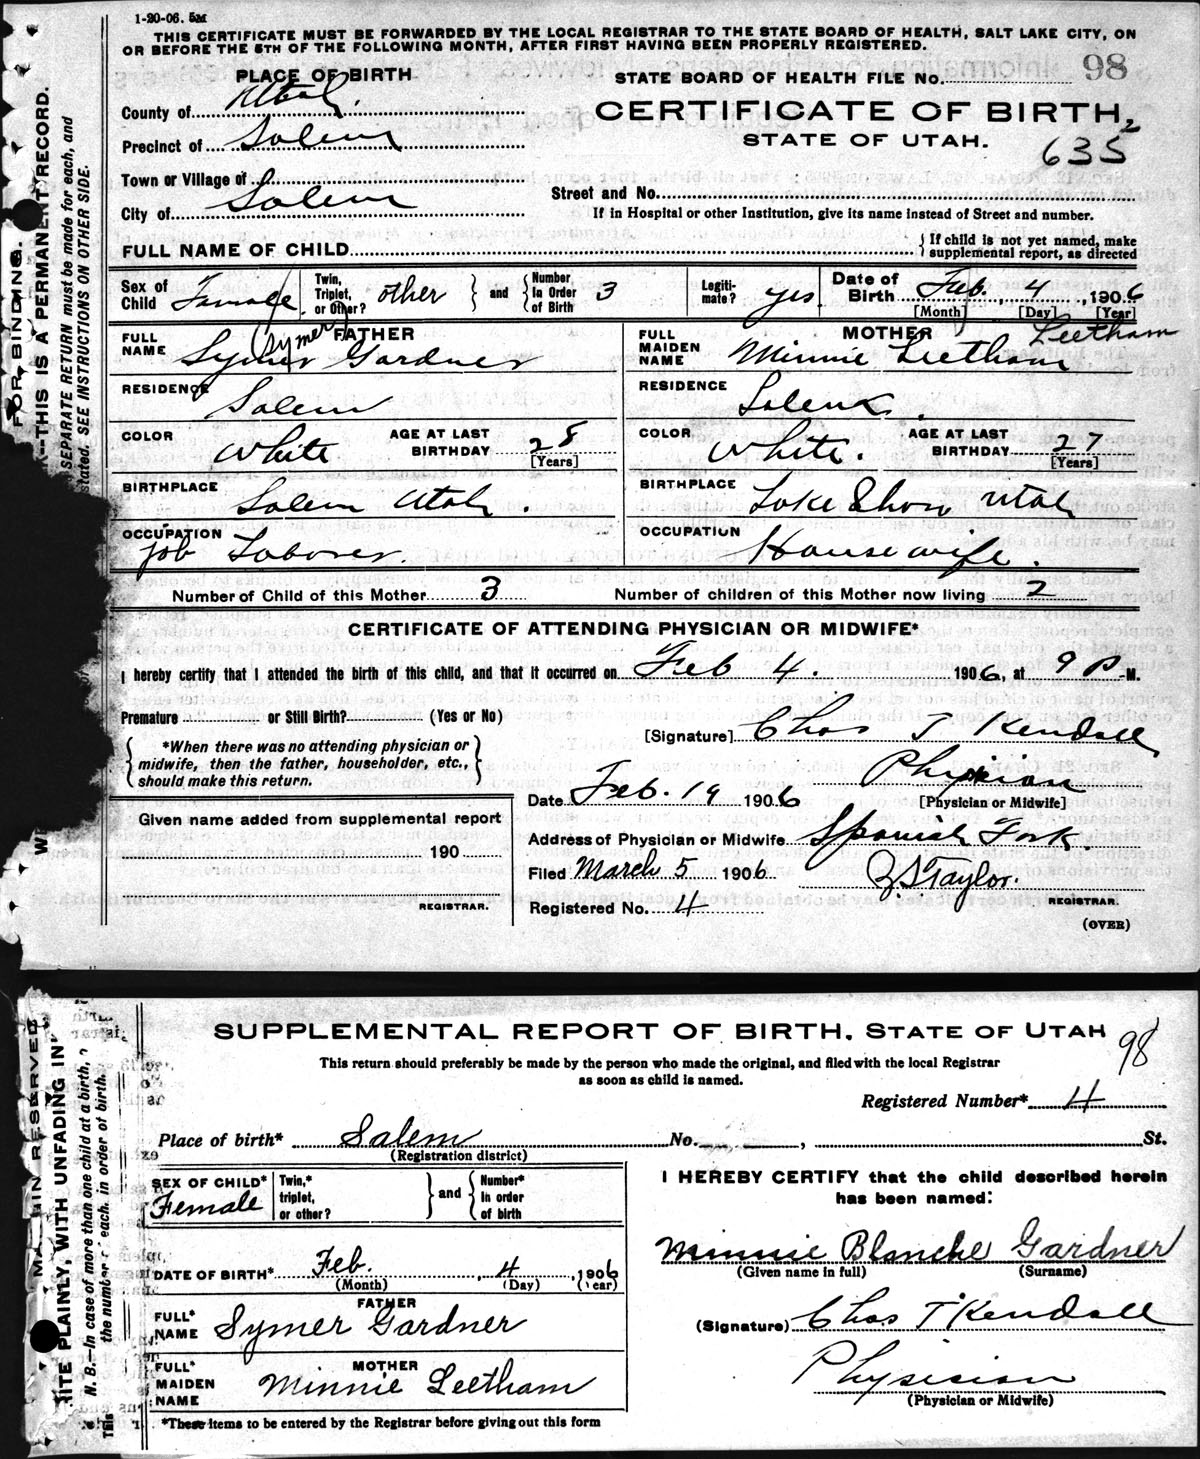 1-20-06. 5M
THIS CERTIFICATE MUST BE FORWARDED BY THE LOCAL REGISTRAR TO THE STATE BOARD OF HEALTH, SALT LAKE CITY, ON
OR BEFORE THE 5TH OF THE FOLLOWING MONTH, AFTER FIRST HAVING BEEN PROPERLY REGISTERED.
PLACE OF BIRTH
STATE BOARD OF HEALTH FILE No. 98
County of Utah.
CERTIFICATE OF BIRTH,
Precinct of Salem
STATE OF UTAH.
635
Town or Village of
Street and No.
City of Salem
If in Hospital or other Institution, give its name instead of Street and number.
FULL NAME OF CHILD
{ If child is not yet named, make supplemental report, as directed
Sex of Child Female
Twin, Triplet, or Other? other } and { Number in Order of Birth 3
Legitimate? yes
Date of Birth Feb. 4, 1906
[Month] [Day] [Year]
FATHER
FULL NAME Symer Gardner
Symer
MOTHER
FULL MAIDEN NAME Minnie Leetham
Leetham
RESIDENCE Salem
RESIDENCE Salem.
COLOR White
AGE AT LAST BIRTHDAY 28
[Years]
COLOR White.
AGE AT LAST BIRTHDAY 27
[Years]
BIRTHPLACE Salem Utah.
BIRTHPLACE Lake Shore Utah
OCCUPATION job Laborer.
OCCUPATION Housewife.
Number of Child of this Mother 3
Number of children of this Mother now living 2
CERTIFICATE OF ATTENDING PHYSICIAN OR MIDWIFE*
I hereby certify that I attended the birth of this child, and that it occurred on Feb 4. 1906, at 9 P M.
Premature or Still Birth? (Yes or No)
{ *When there was no attending physician or midwife, then the father, householder, etc., should make this return. }
[Signature] Chas T Kendall
Physician
[Physician or Midwife]
Date Feb. 19 1906
Given name added from supplemental report
190
REGISTRAR.
Address of Physician or Midwife Spanish Fork.
Filed March 5 1906
Z S Taylor.
REGISTRAR.
Registered No. 4
(OVER)
FOR BINDING.
--THIS IS A PERMANENT RECORD.
SEPARATE RETURN must be made for each, and
stated. SEE INSTRUCTIONS ON OTHER SIDE.
SUPPLEMENTAL REPORT OF BIRTH, STATE OF UTAH
98
This return should preferably be made by the person who made the original, and filed with the local Registrar
as soon as child is named.
Registered Number* 4
Place of birth* Salem No. , St.
(Registration district)
SEX OF CHILD* Female
Twin,* triplet, or other? } and { Number* in order of birth
I HEREBY CERTIFY that the child described herein
has been named:
Minnie Blanche Gardner
(Given name in full) (Surname)
DATE OF BIRTH* Feb. 4, 1906
(Month) (Day) (Year)
FATHER
FULL* NAME Symer Gardner
(Signature) Chas T Kendall
MOTHER
FULL* MAIDEN NAME Minnie Leetham
Physician
(Physician or Midwife)
*These items to be entered by the Registrar before giving out this form
MARGIN RESERVED
RITE PLAINLY, WITH UNFADING IN
N. B.--In case of more than one child at a birth,
the number of each, in order of birth.